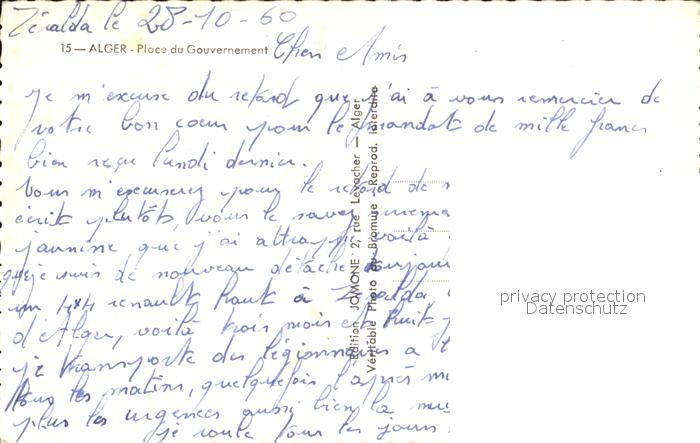 Zéralda le 28-10-60
15 — ALGER - Place du Gouvernement
Chers Amis
je m'excuse du retard que j'ai à vous remercier de
votre bon coeur pour le mandat de mille francs
bien reçu lundi dernier.
Vous m'excuserez pour le retard de
écrit plutôt, vous le savez
jaunisse que j'ai attrapé voilà
que je suis de nouveau détaché toujours
un 4x4 renault à Zéralda,
d'Alger, voilà trois mois et huit
je transporte des légionnaires a
tous les matins, quelquefois l'après mi
plus les urgences aussi bien la nui
je roule tous les jours
Edition JOMONE 2, rue Levacher — Alger
Véritable Photo au Bromure - Reprod. Interdite
privacy protection
Datenschutz